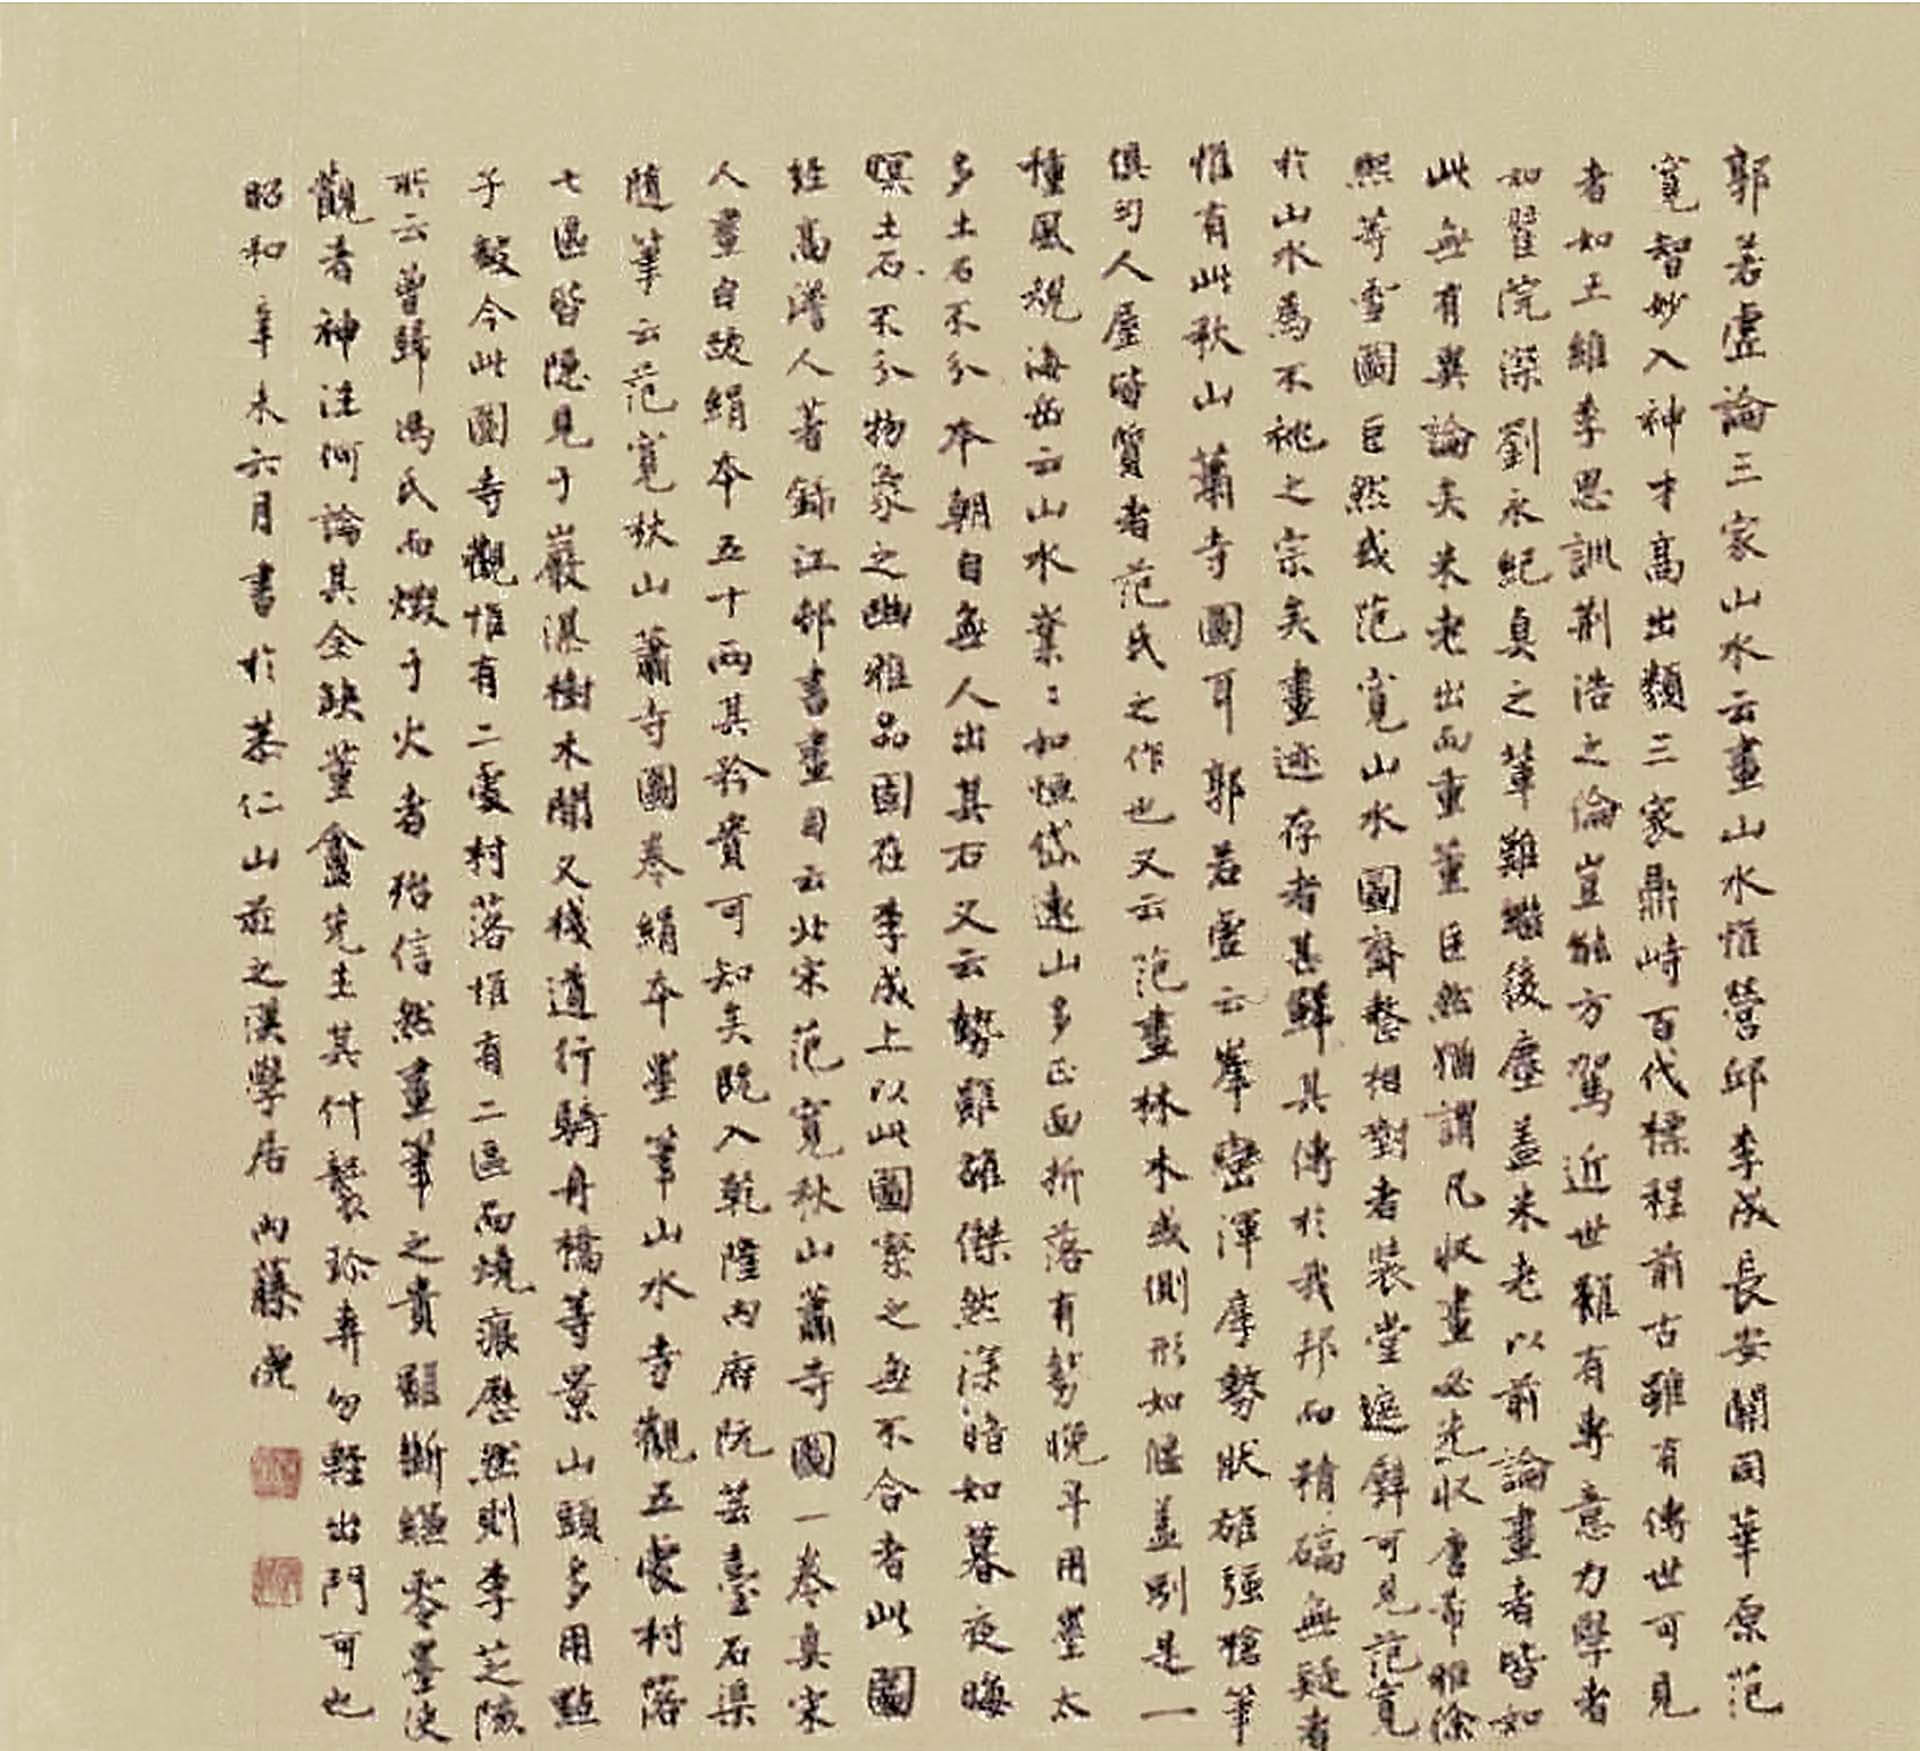 郭若虛論三家山水云畫山水惟營邱李成長安關同華原范
寬智妙入神才高出類三家鼎峙百代標程前古雖有傳世可見
者如王維李思訓荊浩之倫豈能方駕近世雖有專意力學者
如翟院深劉永紀真之輩難繼後塵蓋米老以前論畫者皆如
此無有異論矣米老出而重董巨然猶謂凡收畫必先收唐希雅徐
熙等雪圖巨然或范寬山水圖齊整相對者裝堂遮壁可見范寬
於山水為不祧之宗矣畫迹存者甚鮮其傳於我邦而精確無疑者
惟有此秋山蕭寺圖耳郭若虛云峯巒渾厚勢狀雄強槍筆
俱勻人屋皆質者范氏之作也又云范畫林木或側形如偃蓋別是一
種風規海岳云山水業〻如恒岱遠山多正面折落有勢晚年用墨太
多土石不分本朝自無人出其右又云勢雖雄傑然深暗如暮夜晦
暝土石不分物象之幽雅品固在李成上以此圖案之無不合者此圖
經高澹人著錄江邨書畫目云北宋范寬秋山蕭寺圖一卷真宋
人畫自跋絹本五十兩其矜貴可知矣既入乾隆內府阮芸臺石渠
隨筆云范寬秋山蕭寺圖卷絹本墨筆山水寺觀五處村落
七區皆隱見于巖瀑樹木間又棧道行騎舟橋等景山頭多用點
子皴今此圖寺觀惟有二處村落惟有二區而燒痕歷然則李芝陔
所云曾歸馮氏而燬于火者殆信然畫筆之貴雖斷縑零墨使
觀者神注何論其全缺董盦先生其什襲珍弆勿輕出門可也
昭和辛未六月書於恭仁山莊之漢學居 內藤虎